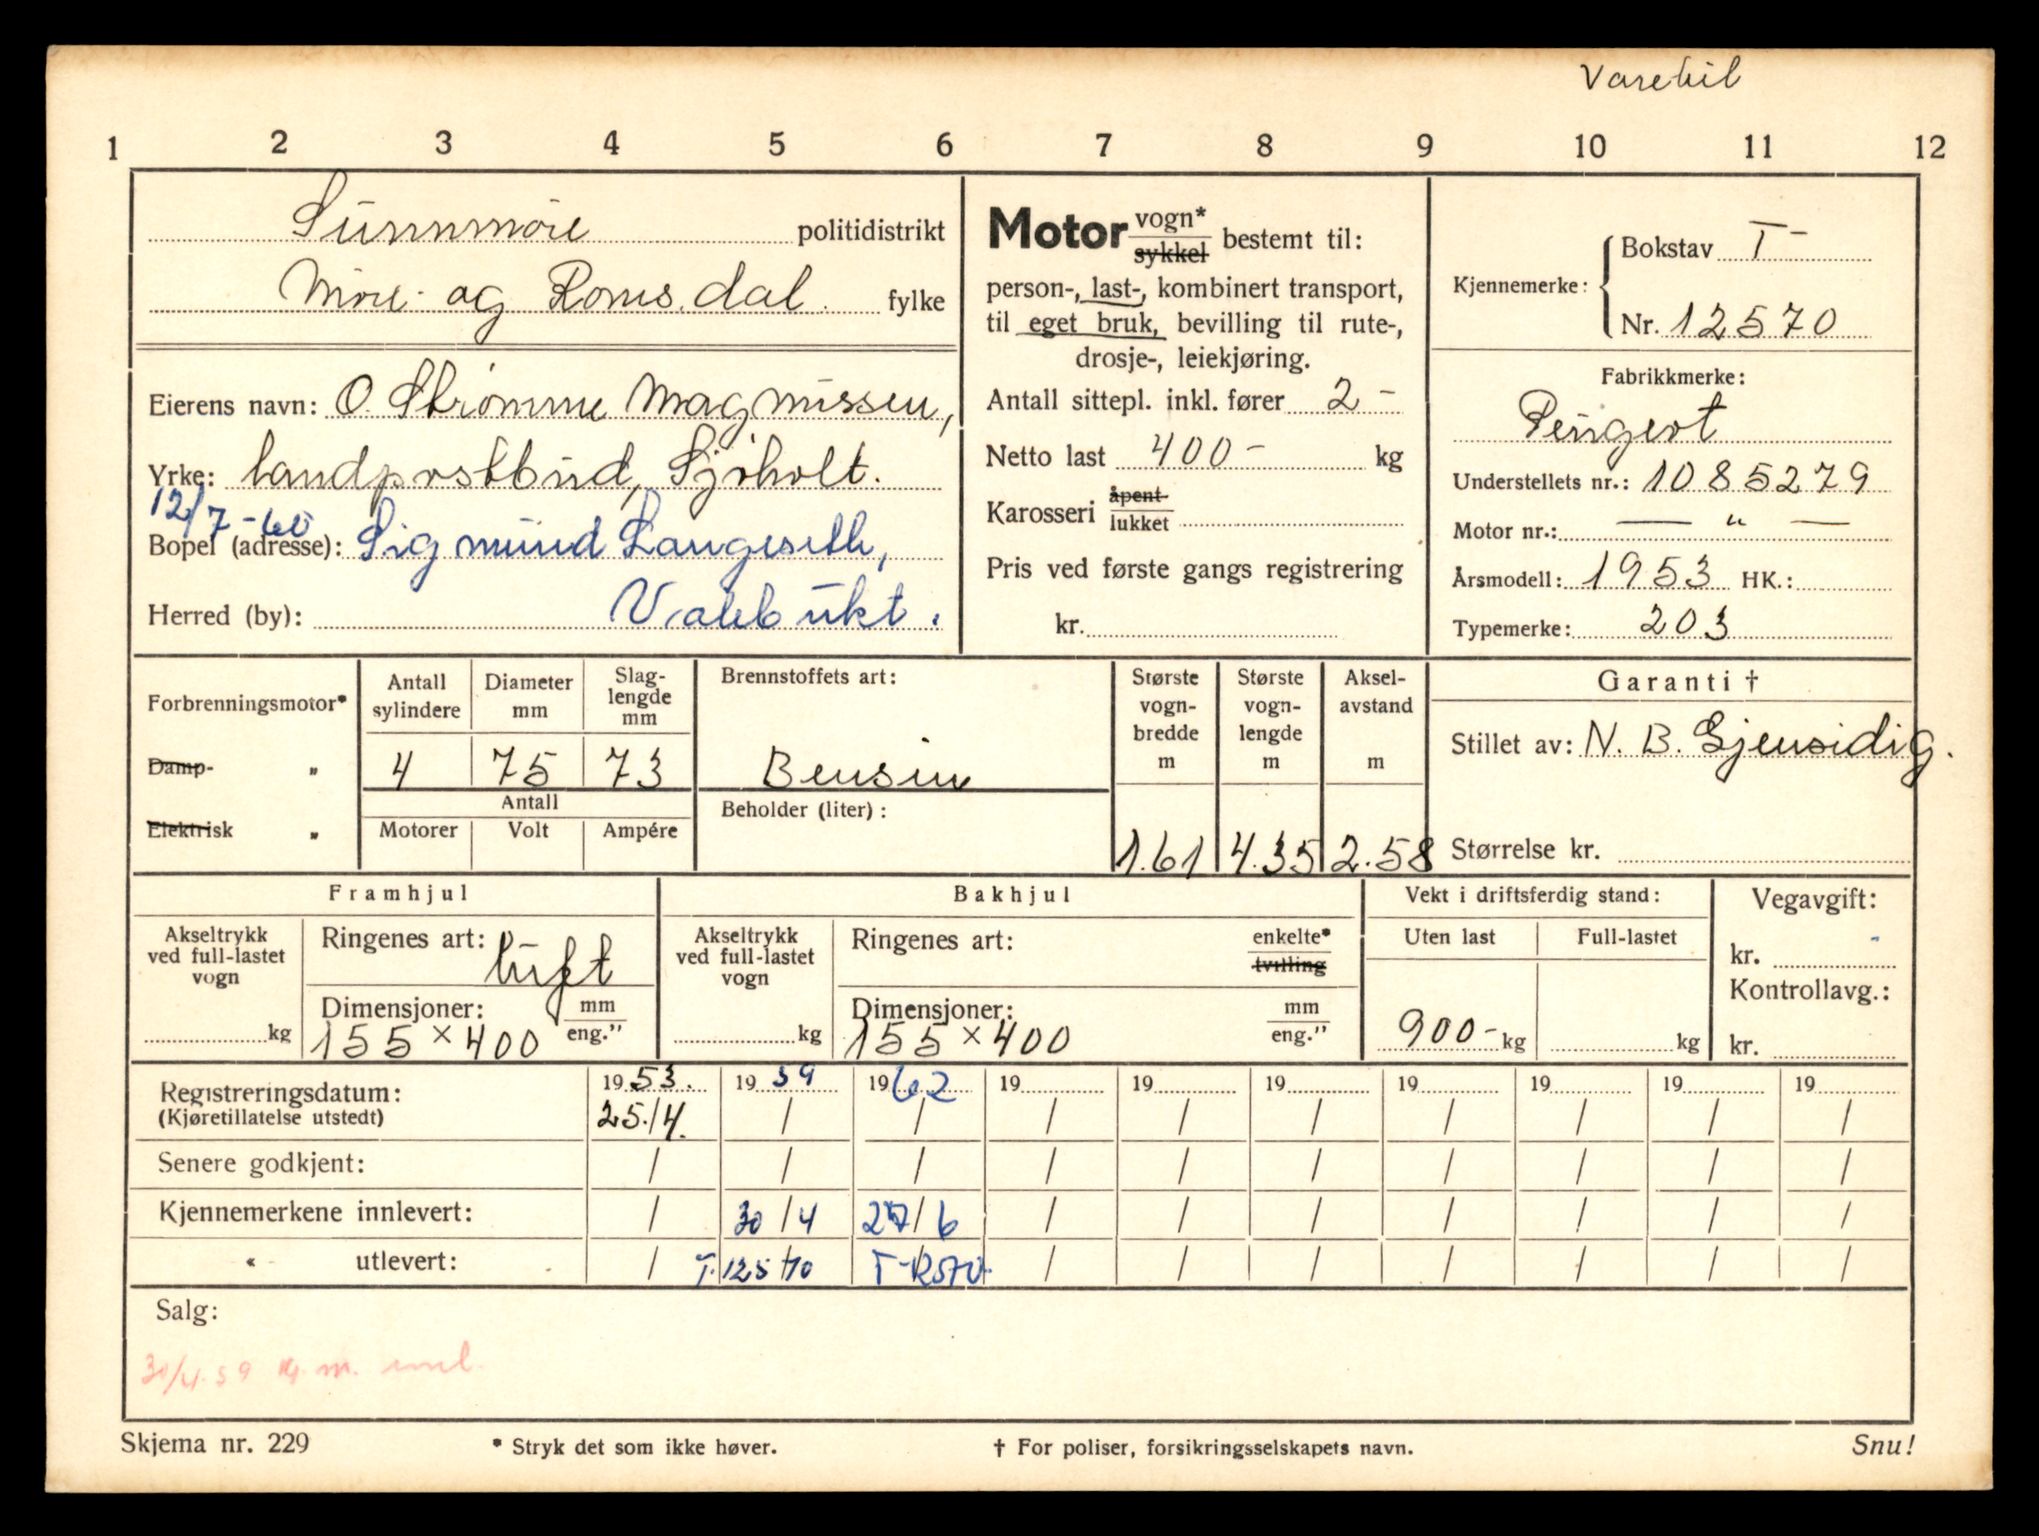 Varebil
1 2 3 4 5 6 7 8 9 10 11 12
Sunnmöre politidistrikt
Möre og Romsdal. fylke
Eierens navn: O. Strömme Magnussen,
Yrke: landpostbud, Sjöholt.
12/7-60
Bopel (adresse): Sigmund Langeseth,
Herred (by): Valebukt.
Motor vogn* sykkel bestemt til:
person-, last-, kombinert transport,
til eget bruk, bevilling til rute-,
drosje-, leiekjøring.
Antall sittepl. inkl. fører 2 -
Netto last 400 - kg
Karosseri åpent lukket
Pris ved første gangs registrering
kr.
Kjennemerke: Bokstav T-
Nr. 12570
Fabrikkmerke:
Peugeot
Understellets nr.: 1085279
Motor nr.: — " —
Årsmodell: 1953 HK.:
Typemerke: 203
Forbrenningsmotor*
Damp- "
Elektrisk "
Antall sylindere Diameter mm Slag-lengde mm
4 75 73
Antall
Motorer Volt Ampére
Brennstoffets art:
Bensin
Beholder (liter):
Største vogn-bredde m Største vogn-lengde m Aksel-avstand m
1.61 4.35 2.58
Garanti †
Stillet av: N. B. Gjensidig.
Størrelse kr.
Framhjul
Akseltrykk ved full-lastet vogn
kg
Ringenes art: luft
Dimensjoner: mm eng."
155 × 400
Bakhjul
Akseltrykk ved full-lastet vogn
kg
Ringenes art: enkelte* tvilling
Dimensjoner: mm eng."
155 × 400
Vekt i driftsferdig stand:
Uten last Full-lastet
900 - kg kg
Vegavgift:
kr.
Kontrollavg.:
kr.
Registreringsdatum: 1953. 1959 1962 19 19 19 19 19 19 19
(Kjøretillatelse utstedt) 25./4. / / / / / / / / /
Senere godkjent: / / / / / / / / / /
Kjennemerkene innlevert: / 30/4 27/6 / / / / / / /
" utlevert: / T-12570 T-12570 / / / / / / /
Salg:
30/4.59 kj. m. innl.
Skjema nr. 229 * Stryk det som ikke høver. † For poliser, forsikringsselskapets navn. Snu!